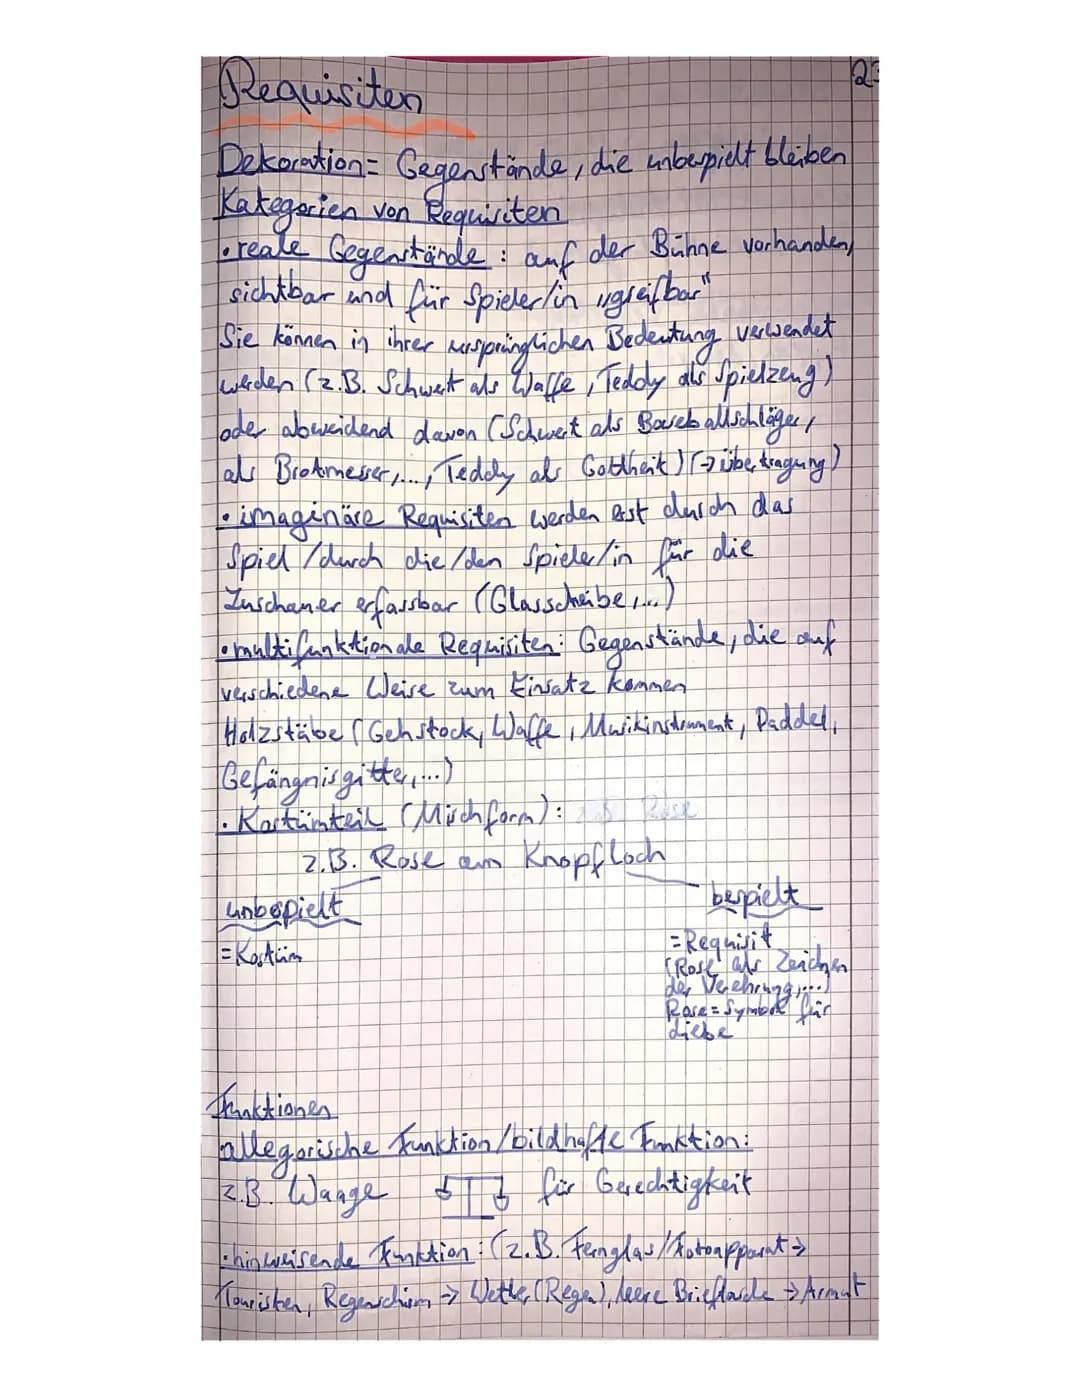 23
Requisiten
Dekoration= Gegenstände, die unbespielt bleiben
Kategorien von Requisiten
• reale Gegenstände : auf der Bühne vorhanden,
sichtbar und für Spieler/in „greifbar"
Sie können in ihrer ursprünglichen Bedeutung verwendet
werden (z.B. Schwert als Waffe, Teddy als Spielzeug)
oder abweidend davon (Schwert als Baseballschläger,
als Brotmesser,..., Teddy als Gottheit) (→ Übertragung)
• imaginäre Requisiten werden erst durch das
Spiel / durch die/den Spieler/in für die
Zuschauer erfassbar (Glasscheibe,...)
• multifunktionale Requisiten: Gegenstände, die auf
verschiedene Weise zum Einsatz kommen
Holzstäbe (Gehstock, Waffe, Musikinstrument, Paddel,
Gefängnisgitter,...)
• Kostümteil (Mischform):
z.B. Rose am Knopfloch
unbespielt
bespielt
=Kostüm
=Requisit
(Rose als Zeichen
der Verehrung,...)
Rose=Symbol für
Liebe
Funktionen
allegorische Funktion/bildhafte Funktion:
z.B. Waage für Gerechtigkeit
• hinweisende Funktion: (z.B. Fernglas/Fotoapparat →
Touristen, Regenschirm → Wetter (Regen), leere Brieftasche → Armut